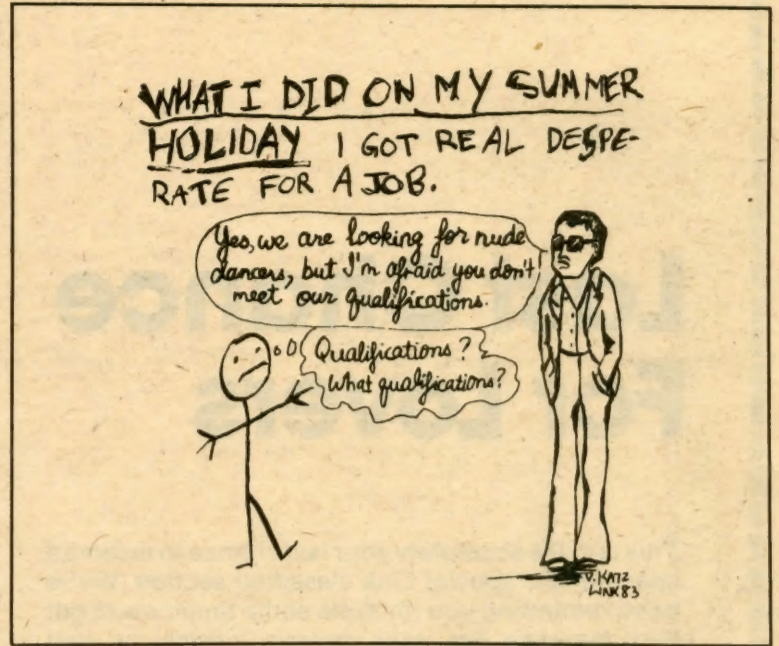 WHAT I DID ON MY SUMMER
HOLIDAY I GOT REAL DESPE-
RATE FOR A JOB.
Yes, we are looking for nude
dancers, but I'm afraid you don't
meet our qualifications.
Qualifications?
What qualifications?
D. KATZ
LINK 83